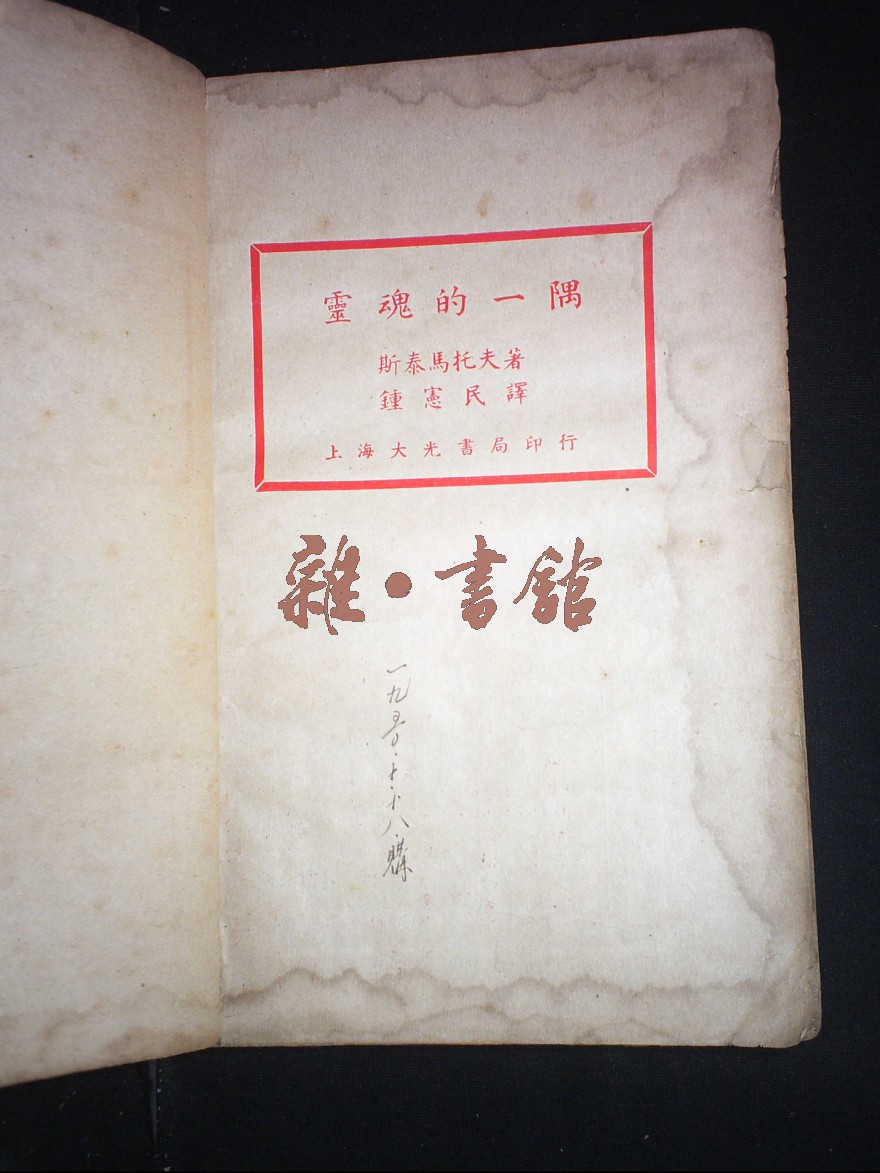 靈魂的一隅
斯泰馬托夫著
鍾憲民譯
上海大光書局印行
雜·書館
一九五〇·十·十八·購